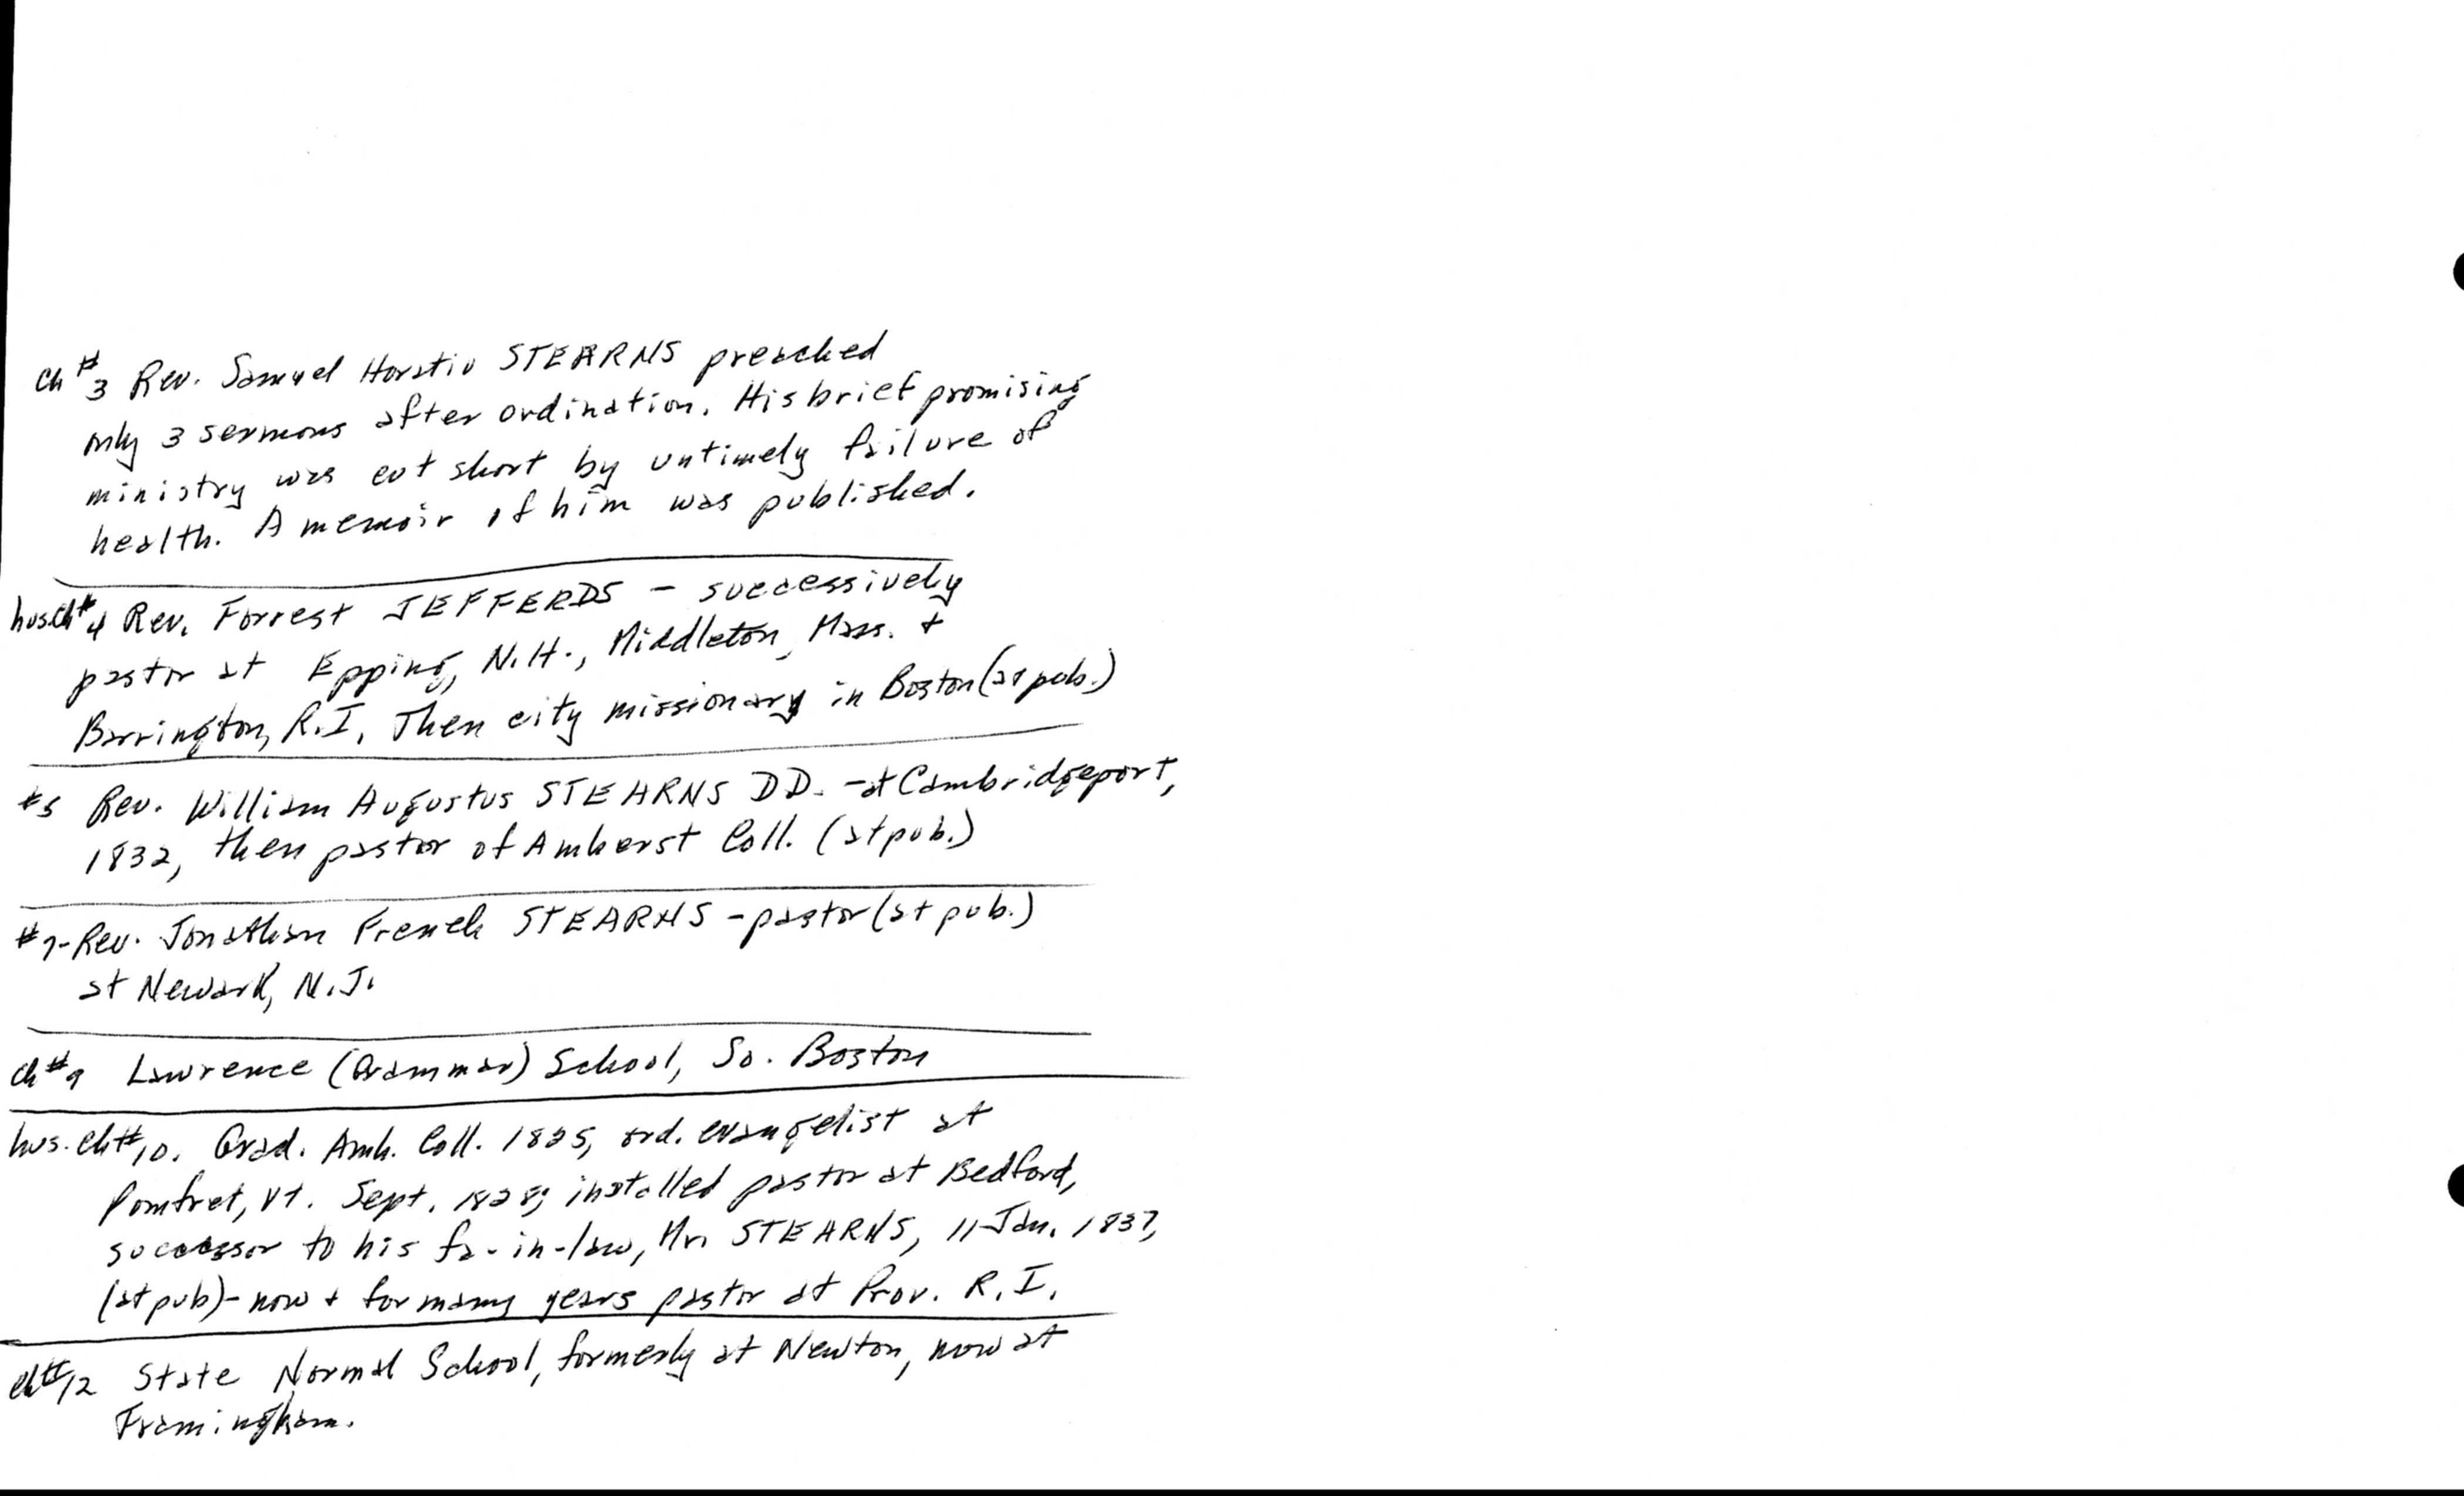 ch #3 Rev. Samuel Horatio STEARNS preached
only 3 sermons after ordination. His brief promising
ministry was cut short by untimely failure of
health. A memoir of him was published.
hus. ch #4 Rev. Forrest JEFFERDS - successively
pastor at Epping, N.H., Middleton, Mass. +
Barrington, R.I. Then city missionary in Boston (at pub.)
#5 Rev. William Augustus STEARNS DD. - at Cambridgeport,
1832, then pastor of Amherst Coll. (at pub.)
#7 - Rev. Jonathan French STEARNS - pastor (at pub.)
at Newark, N.J.
ch #9 Lawrence (Grammar) School, So. Boston
hus. ch #10. Grad. Amh. Coll. 1825, ord. evangelist at
Pomfret, Vt. Sept. 1828; installed pastor at Bedford,
successor to his fa-in-law, Mr. STEARNS, 11 Jan. 1837,
(at pub) - now + for many years pastor at Prov. R.I.
ch #12 State Normal School, formerly at Newton, now at
Framingham.